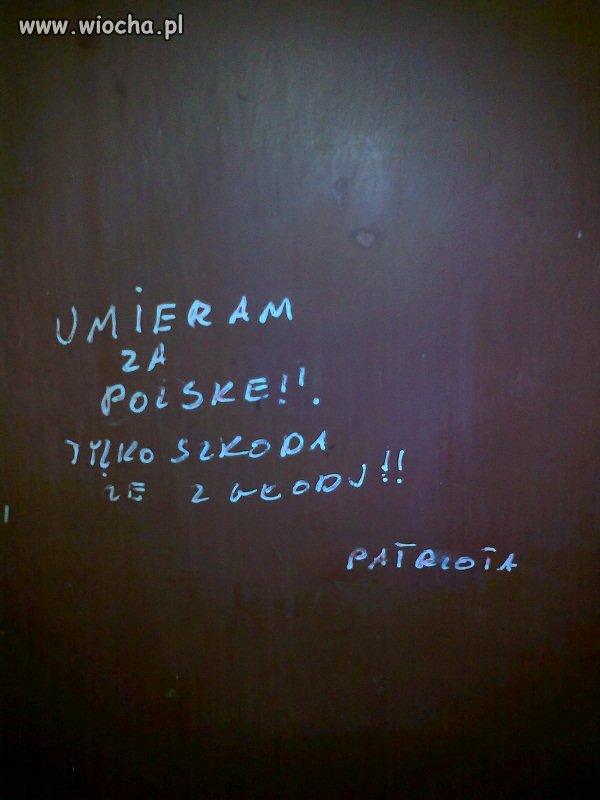 www.wiocha.pl
UMiERAM
ZA
POLSKE!!.
TYLKO SZKODA
ŻE Z GŁODU!!
PATRIOTA